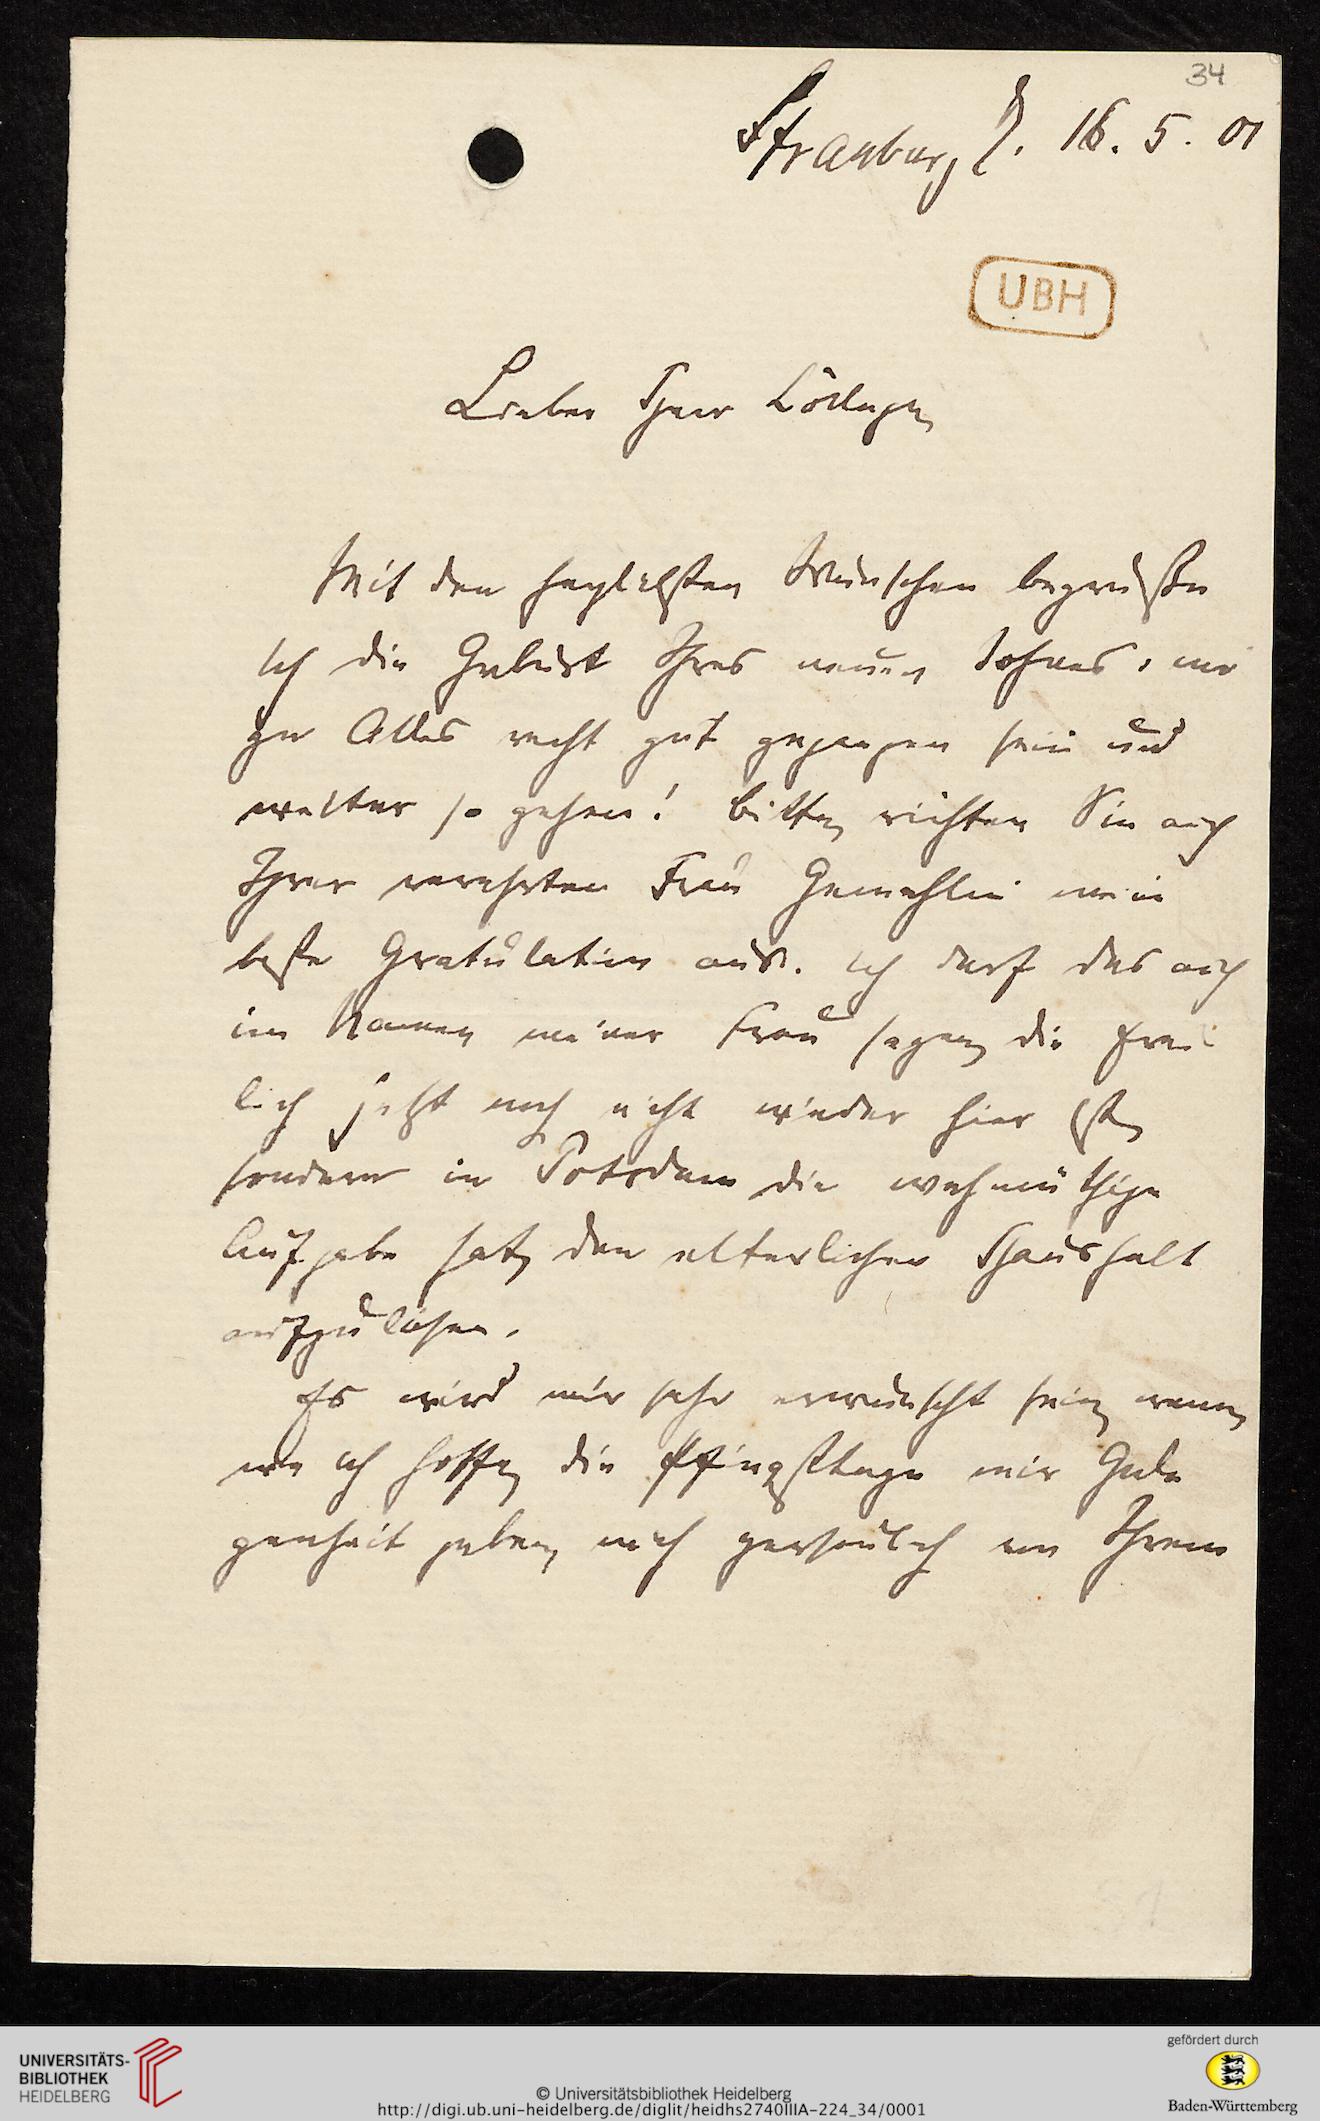 34
Strassburg E. 16. 5. 01
UBH
Lieber Herr College,
Mit den herzlichsten Wünschen begrüße
ich die Geburt Ihres neuen Sohnes: mö
ge Alles recht gut gegangen sein und
weiter so gehen! Bitte, richten Sie auch
Ihrer verehrten Frau Gemahlin meine
beste Gratulation aus. Ich darf das auch
im Namen meiner Frau sagen, die frei
lich jetzt noch nicht wieder hier ist,
sondern in Potsdam die wehmüthige
Aufgabe hat, den elterlichen Haushalt
aufzulösen.
Es wird mir sehr erwünscht sein, wenn,
wie ich hoffe, die Pfingsttage mir Gele
genheit geben, mich persönlich von Ihrem
UNIVERSITÄTS-
BIBLIOTHEK
HEIDELBERG
© Universitätsbibliothek Heidelberg
http://digi.ub.uni-heidelberg.de/diglit/heidhs2740IIIA-224_34/0001
gefördert durch
Baden-Württemberg